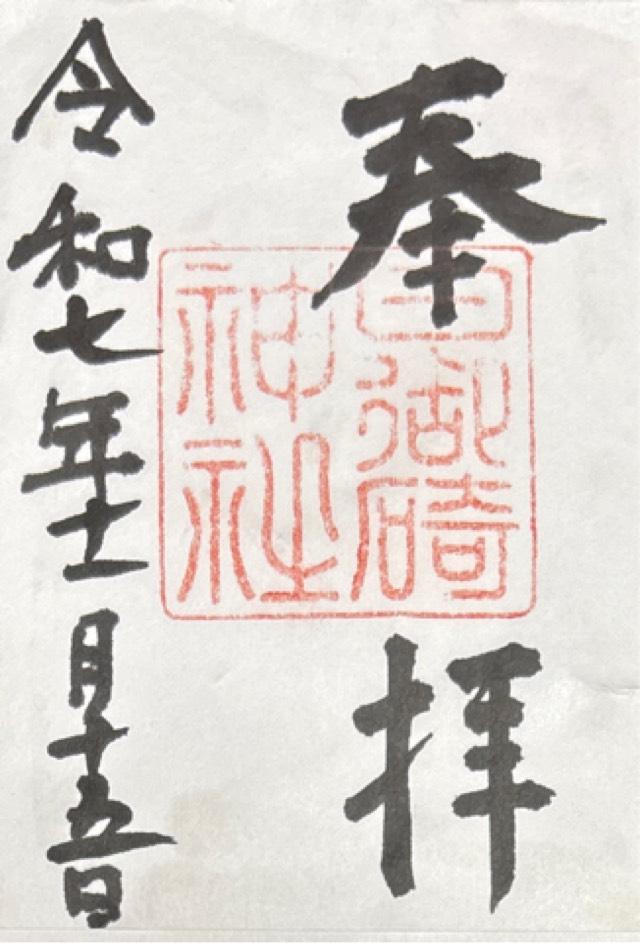 奉拝
日御碕
神社
令和七年十一月十五日